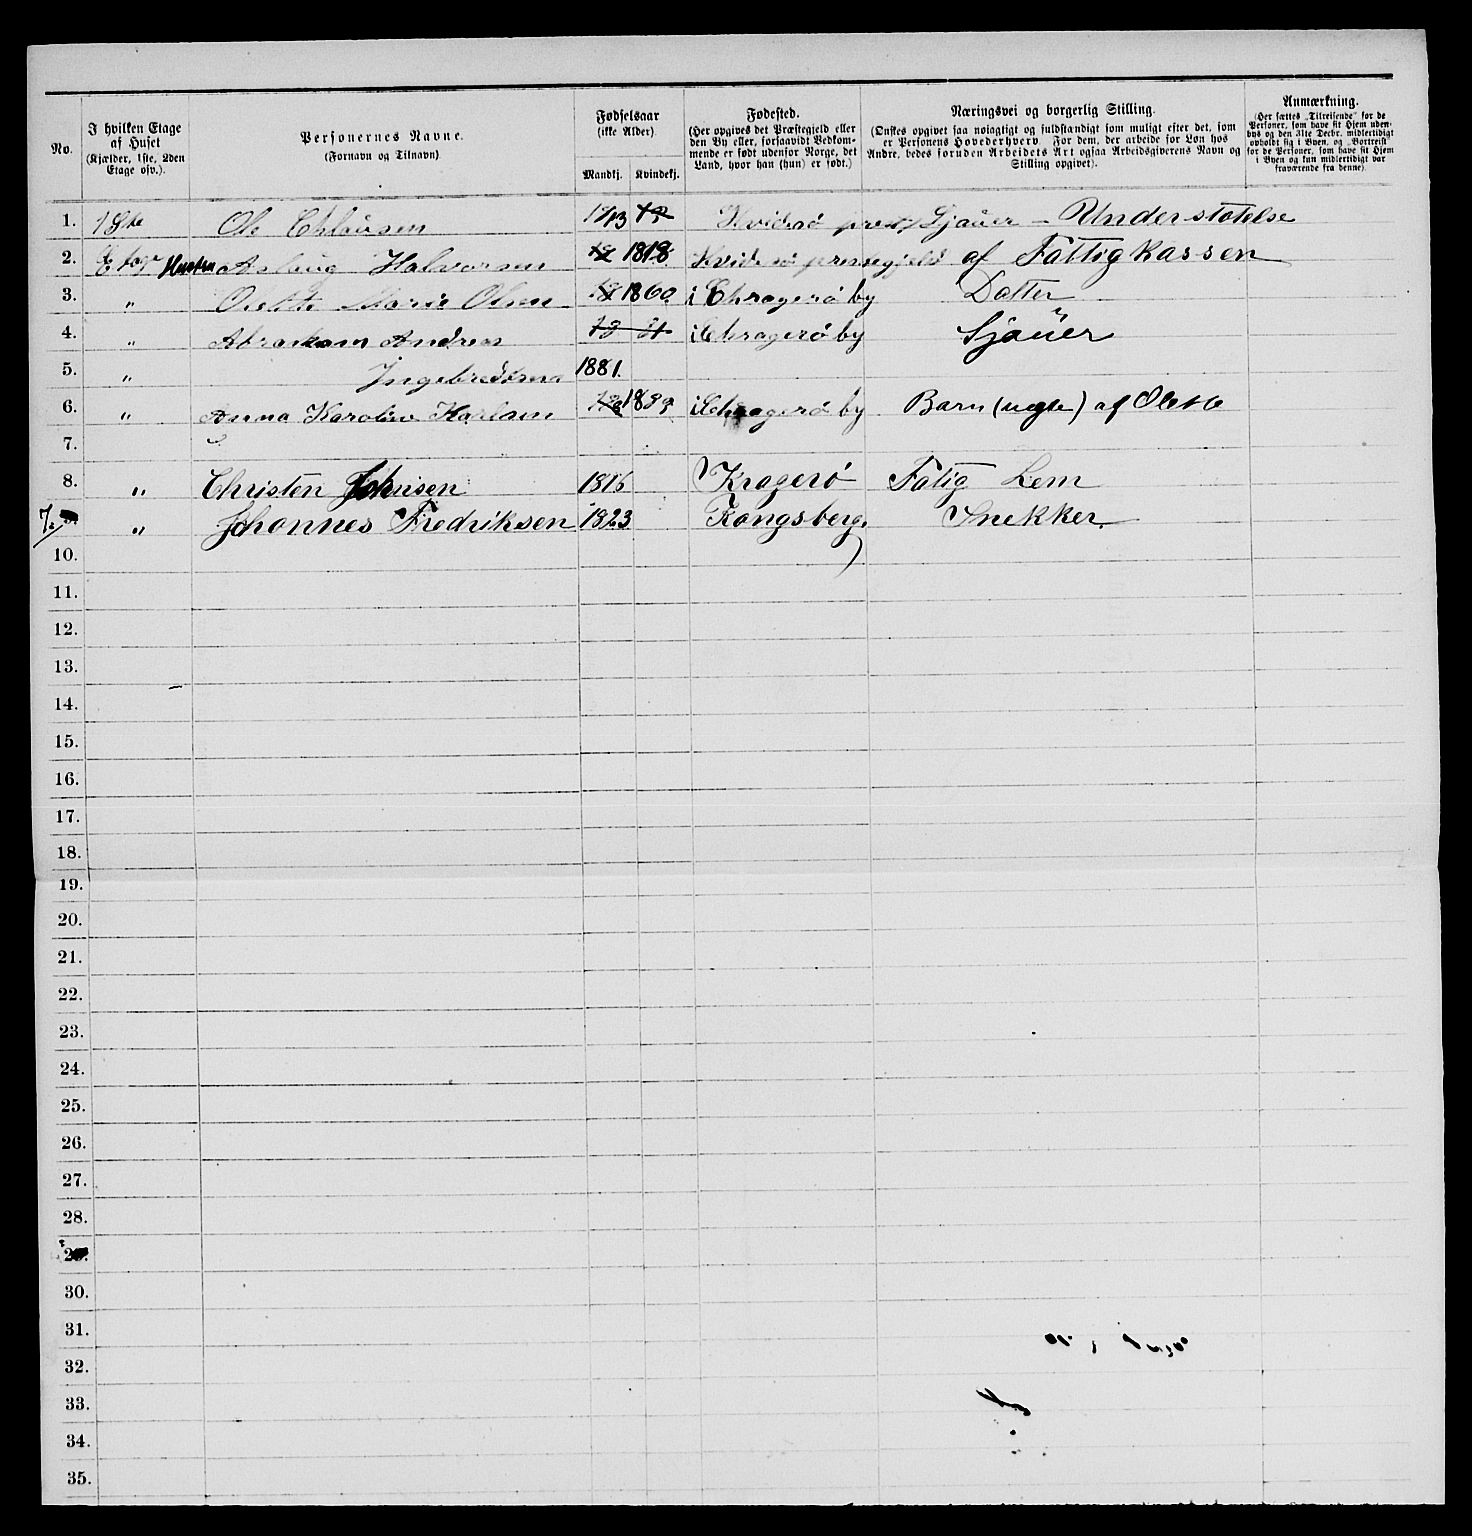 No.
I hvilken Etage
af Huset
(Kjælder, 1ste, 2den
Etage osv.).
Personernes Navne.
(Fornavn og Tilnavn)
Fødselsaar
(ikke Alder)
Mandkj. Kvindekj.
Fødested.
(Her opgives det Præstegjeld eller
den By eller, forsaavidt Vedkom-
mende er født udenfor Norge, det
Land, hvor han (hun) er født.)
Næringsvei og borgerlig Stilling.
(Ønskes opgivet saa nøiagtigt og fuldstændigt som muligt efter det, som
er Personens Hovederhverv For dem, der arbeide for Løn hos
Andre, bedes foruden Arbeidets Art ogsaa Arbeidsgiverens Navn og
Stilling opgivet).
Anmærkning.
(Her sættes „Tilreisende" for de
Personer, som have sit Hjem uden-
bys og den 31te Decbr. midlertidigt
opholdt sig i Byen, og „Bortreist"
for de Personer, som have sit Hjem
i Byen og kun midlertidigt var
fraværende fra denne)
1. 1Ste Ole Chlausen 1813 Kvidesø Sjauer – Understøtelse
2. Etage Hustru Aslaug Halvorsen 1818 Kvidesø af Fattigkassen
3. " Marie Olsen 1860 i Chragerø by Datter
4. " Abraham Andreas i Chragerø by Sjauer
5. " Ingebredtsen 1881.
6. " Anna Karoline i Chragerø by Barn (uegte) af
7.
8. " Christen Johnsen 1816 Kragerø Fatig Lem
7. " Johannes Fredriksen 1823 Kongsberg. Snekker.
10.
11.
12.
13.
14.
15.
16.
17.
18.
19.
20.
21.
22.
23.
24.
25.
26.
27.
28.
29.
30.
31.
32.
33.
34.
35.